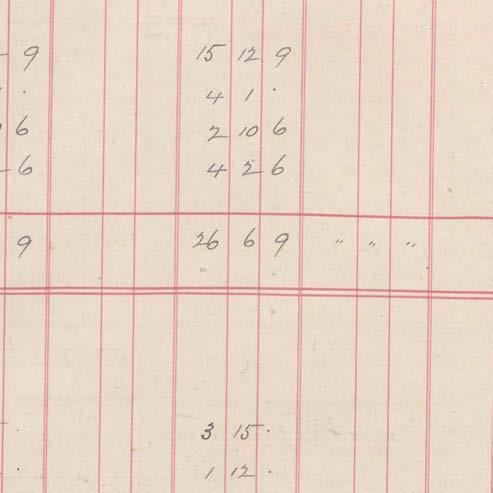 9 15 12 9
. 4 1 .
6 2 10 6
6 4 2 6
9 26 6 9 " " "
. 3 15 .
. 1 12 .